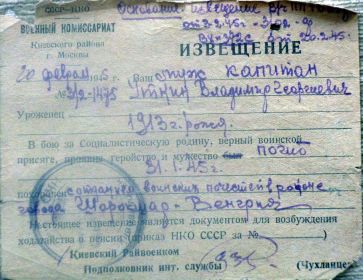 СССР—НКО
Основание извещение в/ч пп
ВОЕННЫЙ КОМИССАРИАТ
Киевского района
г. Москвы
ИЗВЕЩЕНИЕ
20 февраля 1945 Ваш муж капитан
№ 3/2-1475 Владимир Георгиевич
Уроженец 1913 г. рожд.
В бою за Социалистическую родину, верный воинской
присяге, проявив геройство и мужество был погиб
31.1.45 г.
похоронен с отданием воинских почестей в районе
города Шаробгард-Венгрия
Настоящее извещение является документом для возбуждения
ходатайства о пенсии (приказ НКО СССР за №
Киевский Райвоенком
Подполковник инт. службы (Чухланцев)